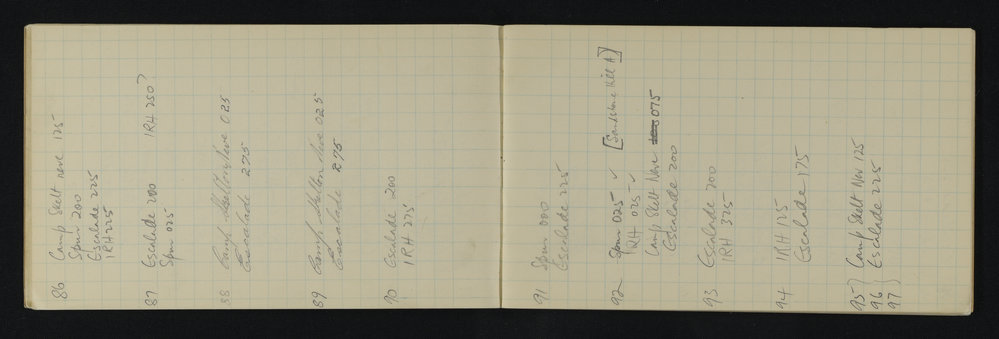 86 Camp Skelt neve 125
Spur 200
Escalade 225
IRH 225
87 Escalade 200 IRH 250?
Spur 025
88 Camp Skelton Neve 025
Escalade 275
89 Camp Skelton Neve 025
Escalade 275
90 Escalade 200
IRH 225
91 Spur 000
Escalade 225
92 Spur 025 ✓ [Sandstone Hill A]
IRH 025 ✓
Camp Skelt Neve 075
Escalade 200
93 Escalade 200
IRH 325
94 IRH 125
Escalade 175
95) Camp Skelt Nev 125
96) Escalade 225
97)